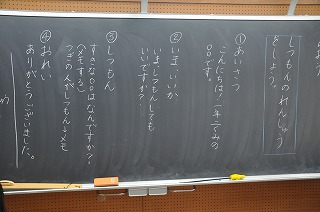 しつもんのれんしゅう
をしよう。
①あいさつ
こんにちは。一年二くみの
○○です。
②いま、いいか
いましつもんしても
いいですか?
③しつもん
すきな○○はなんですか?
(メモする)
つぎの人がしつもん→メモ
④おれい
ありがとうございました。